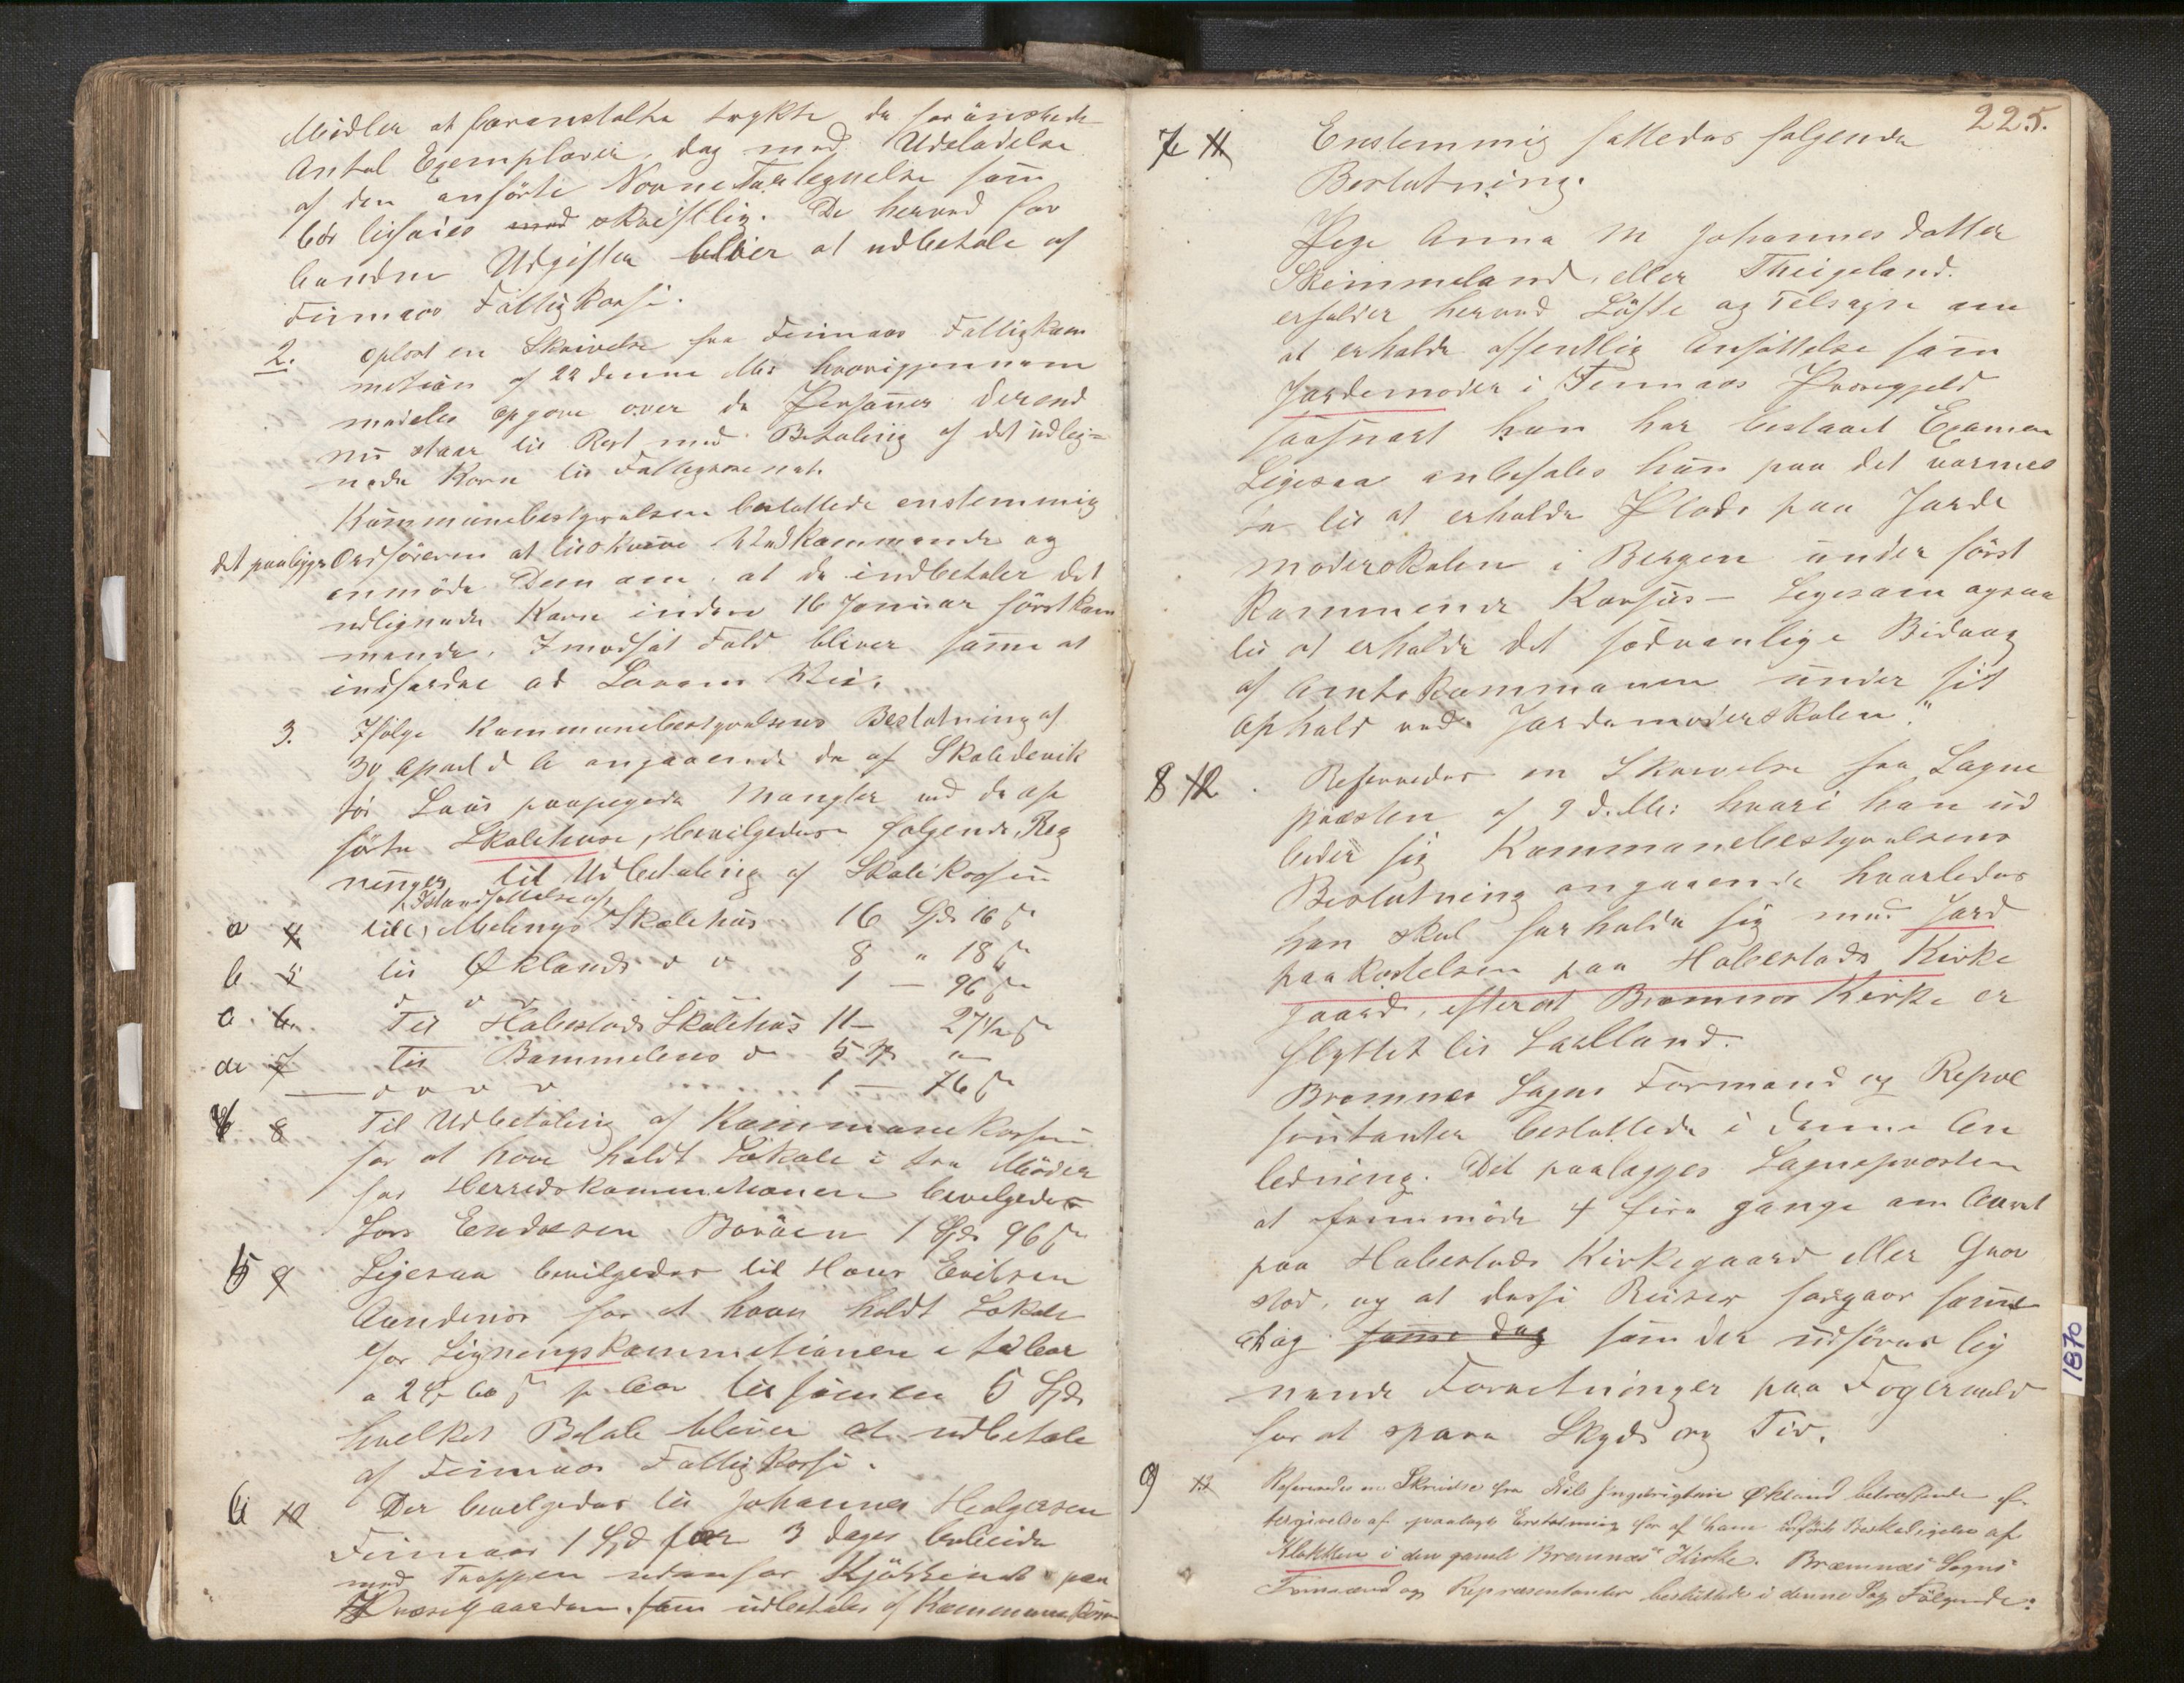 Midler at foranstalte trykte de forönskede
Antal Exemplarer, dog med Udeladelse
af den anförte Navnefortegnelse som
bör tilföies med skriftlig. De herved for
bundne Udgifter bliver at udbetale af
Finnaas Fattigkasse.
2. Oplæst en Skrivelse fra Finnaas Fattigkom
mission af 22 denne Mds hvorigjennem
meddeles Opgave over de Personer derend
nu staar til Rest med Betaling af det udlig=
nede Korn til Fattigvæsenet.
Kommunebestyrelsen besluttede enstemmig
det paalægges Ordföreren at tilskrive Vedkommende og
anmode Dem om, at de indbetaler det
udlignede Korn inden 16 Januar förstkom
mende. I modsat Fald bliver samme at
inddrive ad Lovens Vei.
3. Ifölge Kommunebestyrelsens Beslutning af
30 April d A angaaende de af Skoledirek
tör Laus paapegede Mangler ved de op
förte Skolehuse, bevilgedes folgende Reg
ninger til Udbetaling af Skolekassen
Istandsættelse af
a 4 til Melings Skolehus 16 Spd 16 s
b 5 til Øklands do do 8 " 18 s
do do do 1 — 96 s
c. 6. Til Habestads Skolehus 11 — 27½ s
d 7 Til Bømmelens do 5 Sp "
— do do do do 1 — 76 s
4 8 Til Udbetaling af Kommunekassen
for at have holdt Lokale i tre Möder
for Herredskommisionen bevilgedes
Lars Endresen Boröen 1 Spd 96 s
5 9 Ligesaa bevilgedes til Hans Eriksen
for at have holdt Lokale
for Ligningskommisionen i to Aar
a 2 Sp 60 s p Aar tilsammen 5 Spd
hvilket Belöb bliver at udbetale
af Finnaas Fattigkasse.
6 10 Der bevilgedes til Johannes Helgesen
Finnaas 1 Spd for 3 dages Arbeide
med Trappen udenfor Kjökkenet paa
Præstegaarden som udbetales af Kommunekassen
225.
7 11 Enstemmig fattedes folgende
Beslutning.
Pige Anna M Johannesdatter
Skimmeland, eller Theigeland.
erholder herved Löfte og Tilsagn om
at erholde offentlig Ansættelse som
Jordemoder i Finnaas Præstegjeld
saasnart hun har bestaaet Examen
Ligesaa anbefales hun paa det varmes
te til at erholde Plads paa Jorde
moderskolen i Bergen under först
kommende Kursus — Ligesom ogsaa
til at erholde det sædvanlige Bidrag
af Amtskommunen under sit
Ophold ved Jordemoderskolen."
8 12. Refereredes en Skrivelse fra Sogne
præsten af 9 d. M: hvori han ud
beder sig Kommunebestyrelsens
Beslutning angaaende hvorledes
han skal forholde sig med Jord
paakastelsen paa Habestads Kirke
gaard, efterat Bremnes Kirke er
flyttet til Laelland.
Bremnes Sogns Formænd og Repræ
sentanter besluttede i denne An
ledning. Det paalægges Sognepræsten
at fremmöde 4 fire gange om Aaret
paa Habestads Kirkegaard eller Grav
sted, og at disse Reiser foregaar samme
dag samme dag som der udföres lig
nende Forretninger paa Fogeraald
for at spare Skyds og Tid.
9 13 Refereredes en Skrivelse fra Nils Ingebrigtsen Økland betræffende ef
tergivelse af paalagt Erstatning for af ham udført Beskadigelse af
Klokken i den gamle Bremnæs Kirke. Bremnæs Sogns
Formænd og Repræsentanter besluttede i denne Sag Fölgende:
1870